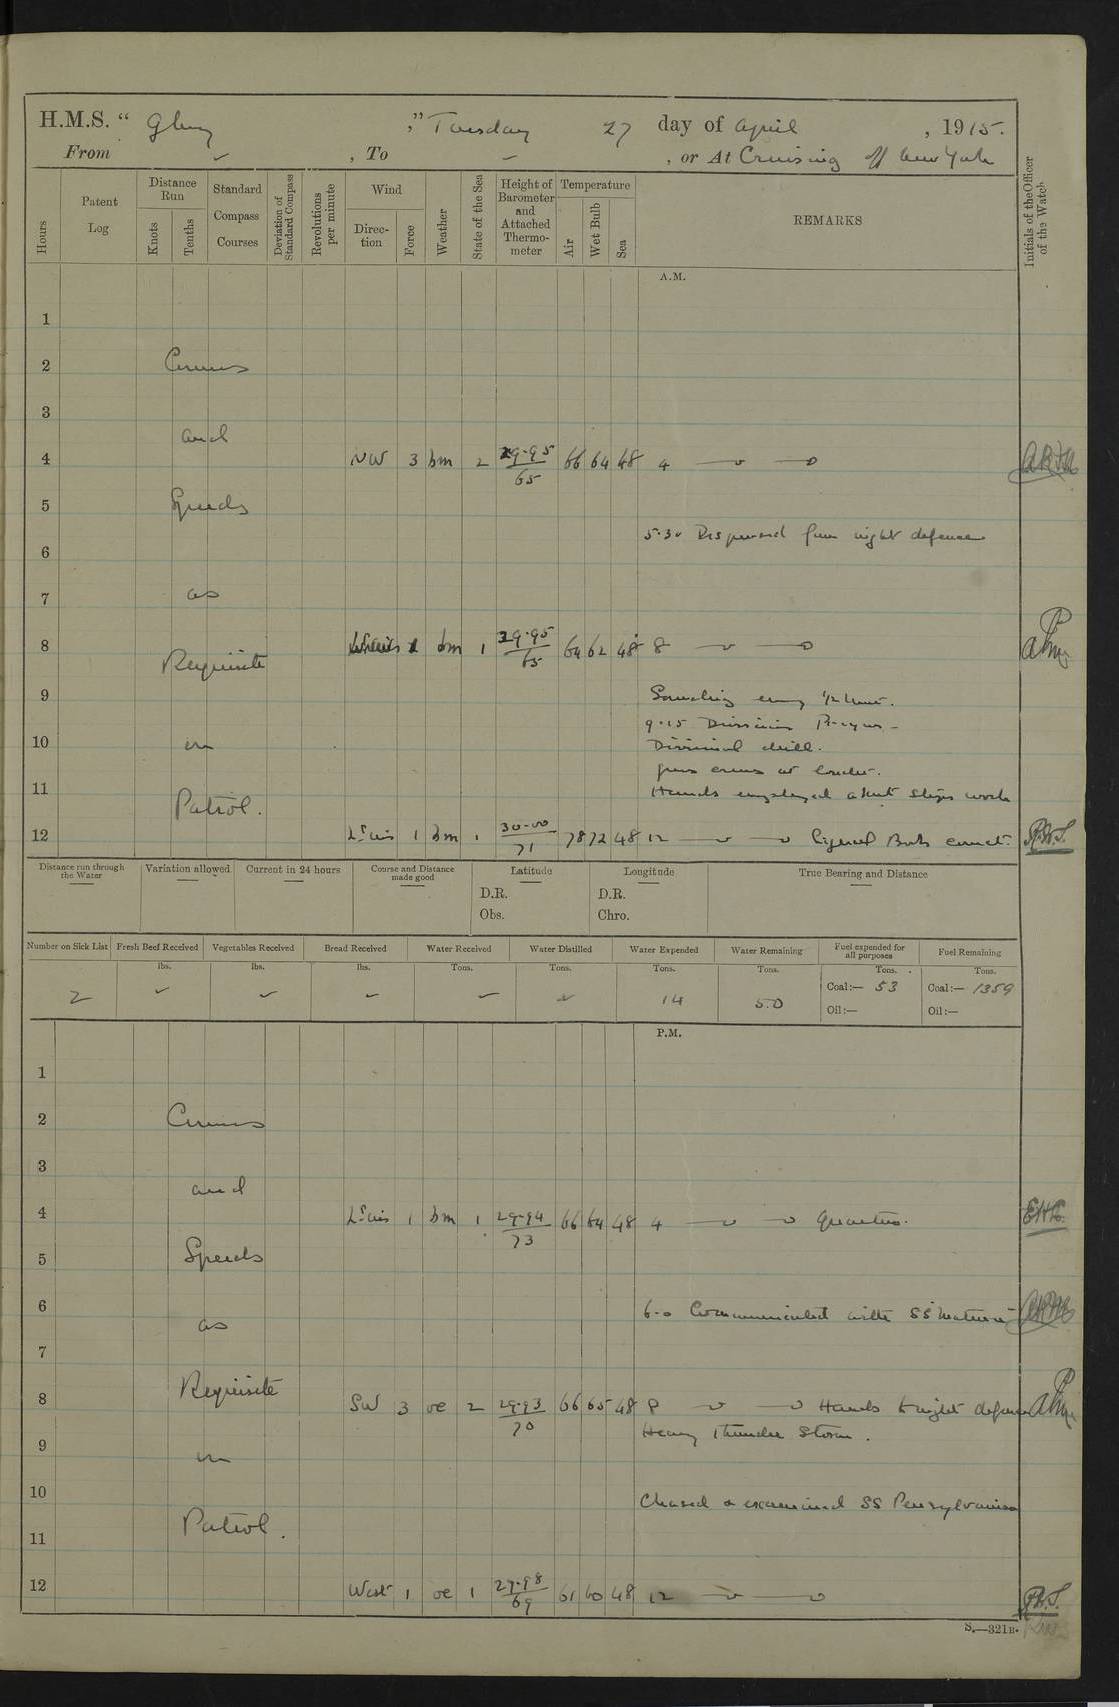 H.M.S. “ Glory ,” Tuesday 27 day of April , 1915.
From ~ , To ~ , or At Cruising off New York
Hours
Patent Log
Distance Run
Knots
Tenths
Standard Compass Courses
Deviation of Standard Compass
Revolutions per minute
Wind
Direction
Force
Weather
State of the Sea
Height of Barometer and Attached Thermometer
Temperature
Air
Wet Bulb
Sea
REMARKS
Initials of the Officer of the Watch
A.M.
1
2 Courses
3
and
4 NW 3 bm 2 29.95 65 66 64 48 4
5 Speeds
5.30 Dispersed from night defence
6
7 as
8 1 bm 1 29.95 65 64 62 48 8
Requisite
9 Sounding every 1/2 hour.
9.15 Divisions Prayers
10 on Divisional drill.
Guns crews at loader.
11 Hands employed about ships work
Patrol.
12 Lt airs 1 bm 1 30.00 71 78 72 48 12 Signal Books correct. R.W.S.
Distance run through the Water
Variation allowed
Current in 24 hours
Course and Distance made good
Latitude
D.R.
Obs.
Longitude
D.R.
Chro.
True Bearing and Distance
Number on Sick List
Fresh Beef Received
Vegetables Received
Bread Received
Water Received
Water Distilled
Water Expended
Water Remaining
Fuel expended for all purposes
Fuel Remaining
lbs. lbs. lbs. Tons. Tons. Tons. Tons. Tons. Tons.
2 14 50 Coal:— 53 Coal:— 1359
Oil:— Oil:—
P.M.
1
2 Courses
3
and
4 Lt airs 1 bm 1 29.94 73 66 64 48 4 Quarters.
5 Speeds
6 6.0 Communicated with SS
as
7
Requisite
8 SW 3 oc 2 29.93 70 66 65 48 8 Hands to night defence
Heavy Thunder Storm.
9 on
10 Chased & examined SS Pensylvanian
Patrol.
11
12 West 1 oc 1 29.98 69 61 60 48 12 R.W.S.
S.—321B.